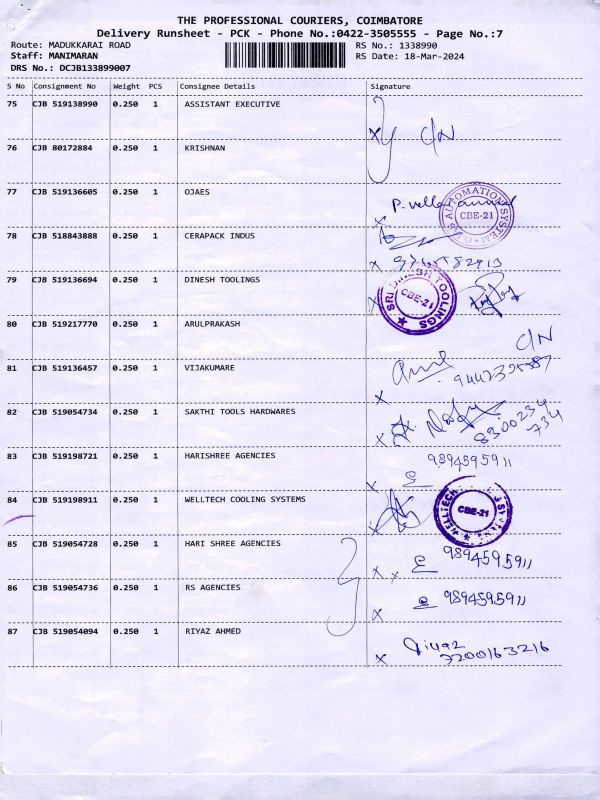 THE PROFESSIONAL COURIERS, COIMBATORE
Delivery Runsheet - PCK - Phone No.:0422-3505555 - Page No.:7
Route: MADUKKARAI ROAD
RS No.: 1338990
Staff: MANIMARAN
RS Date: 18-Mar-2024
DRS No.: DCJB133899007
S No Consignment No Weight PCS Consignee Details Signature
75 CJB 519138990 0.250 1 ASSISTANT EXECUTIVE
x C/N
76 CJB 80172884 0.250 1 KRISHNAN
77 CJB 519136605 0.250 1 OJAES
AUTOMATION SYSTEM CBE-21
x
78 CJB 518843888 0.250 1 CERAPACK INDUS
x
79 CJB 519136694 0.250 1 DINESH TOOLINGS
SRI DINESH TOOLINGS CBE-21
x
80 CJB 519217770 0.250 1 ARULPRAKASH
C/N
81 CJB 519136457 0.250 1 VIJAKUMARE
x
82 CJB 519054734 0.250 1 SAKTHI TOOLS HARDWARES
8300234
734
x
83 CJB 519198721 0.250 1 HARISHREE AGENCIES
9894595911
x
84 CJB 519198911 0.250 1 WELLTECH COOLING SYSTEMS
WELLTECH CBE-21
x
85 CJB 519054728 0.250 1 HARI SHREE AGENCIES
9894595911
x x
86 CJB 519054736 0.250 1 RS AGENCIES
9894595911
x
87 CJB 519054094 0.250 1 RIYAZ AHMED
Riyaz
7200163216
x